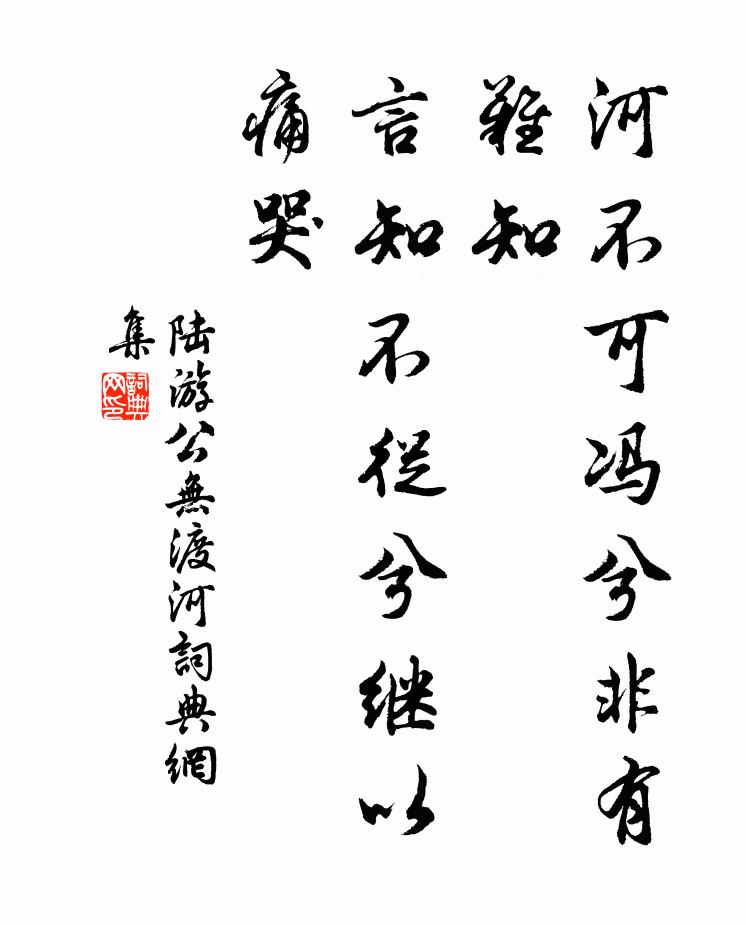 河不可冯兮非有
難知
言知不從兮继以
痛哭
陆游公無渡河詞典網
集
詞典
网印